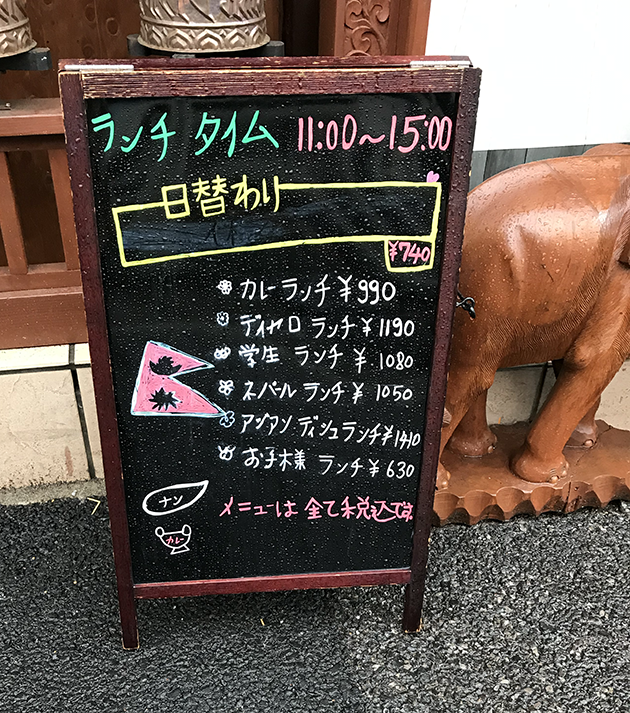 ランチ タイム 11:00~15:00
日替わり
¥740
カレーランチ ¥990
ディヤロ ランチ ¥1190
学生 ランチ ¥ 1080
ネパール ランチ ¥ 1050
アジアンディシュランチ ¥1410
お子様 ランチ ¥ 630
メニューは 全て税込です
ナン
カレー